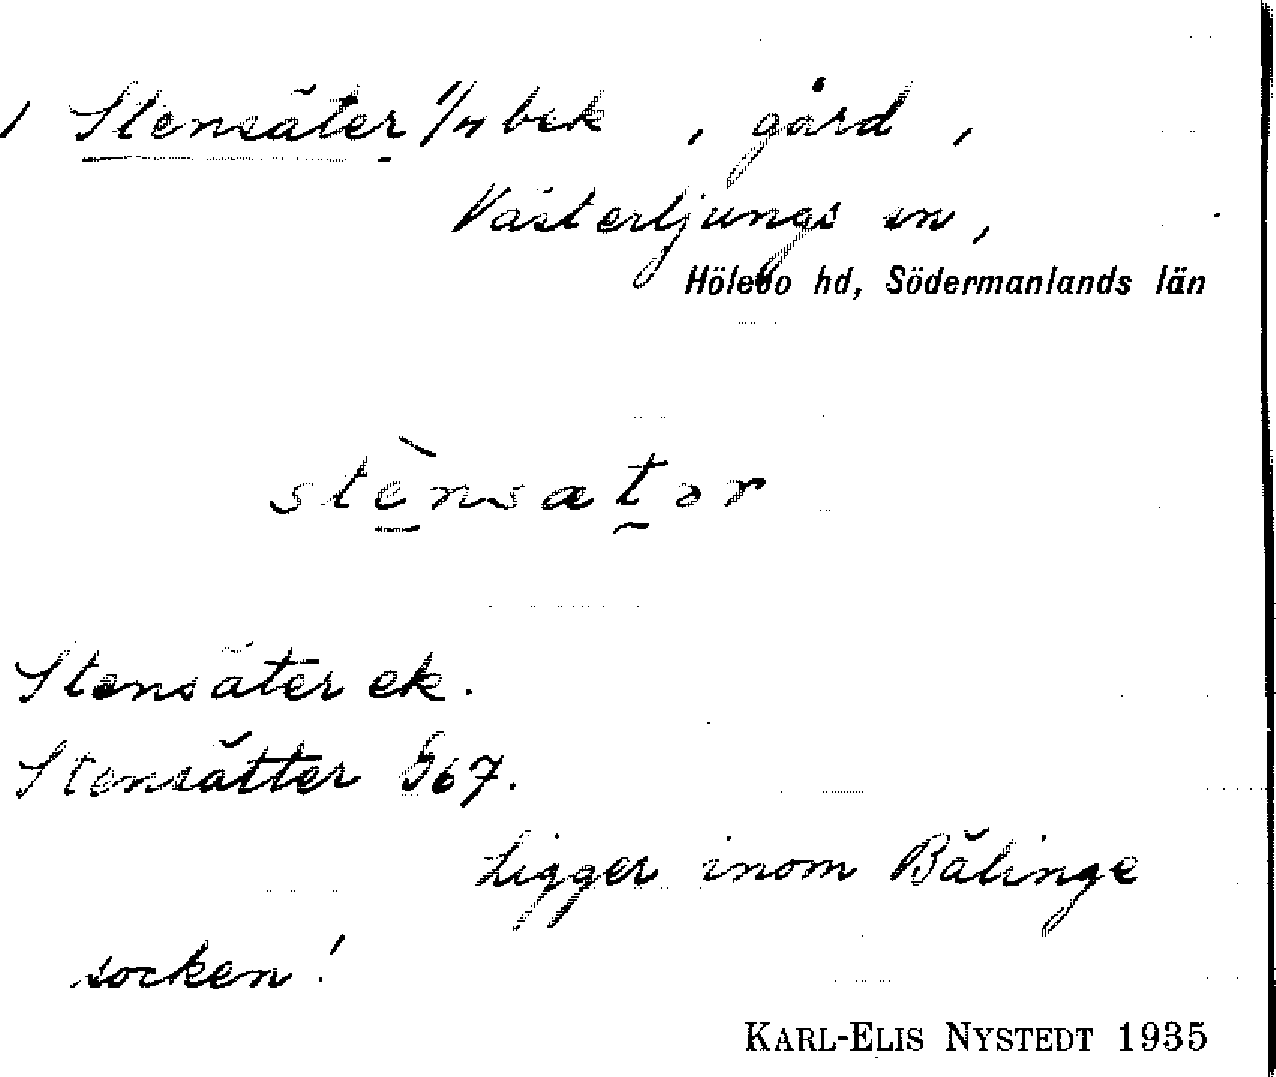 Stensäter 1/4 bek, gård,
Västerljungs sn,
Hölebo hd, Södermanlands län
stènsatər
Stensäter ek.
Stensätter G67.
Ligger inom Bälinge
socken!
KARL-ELIS NYSTEDT 1935